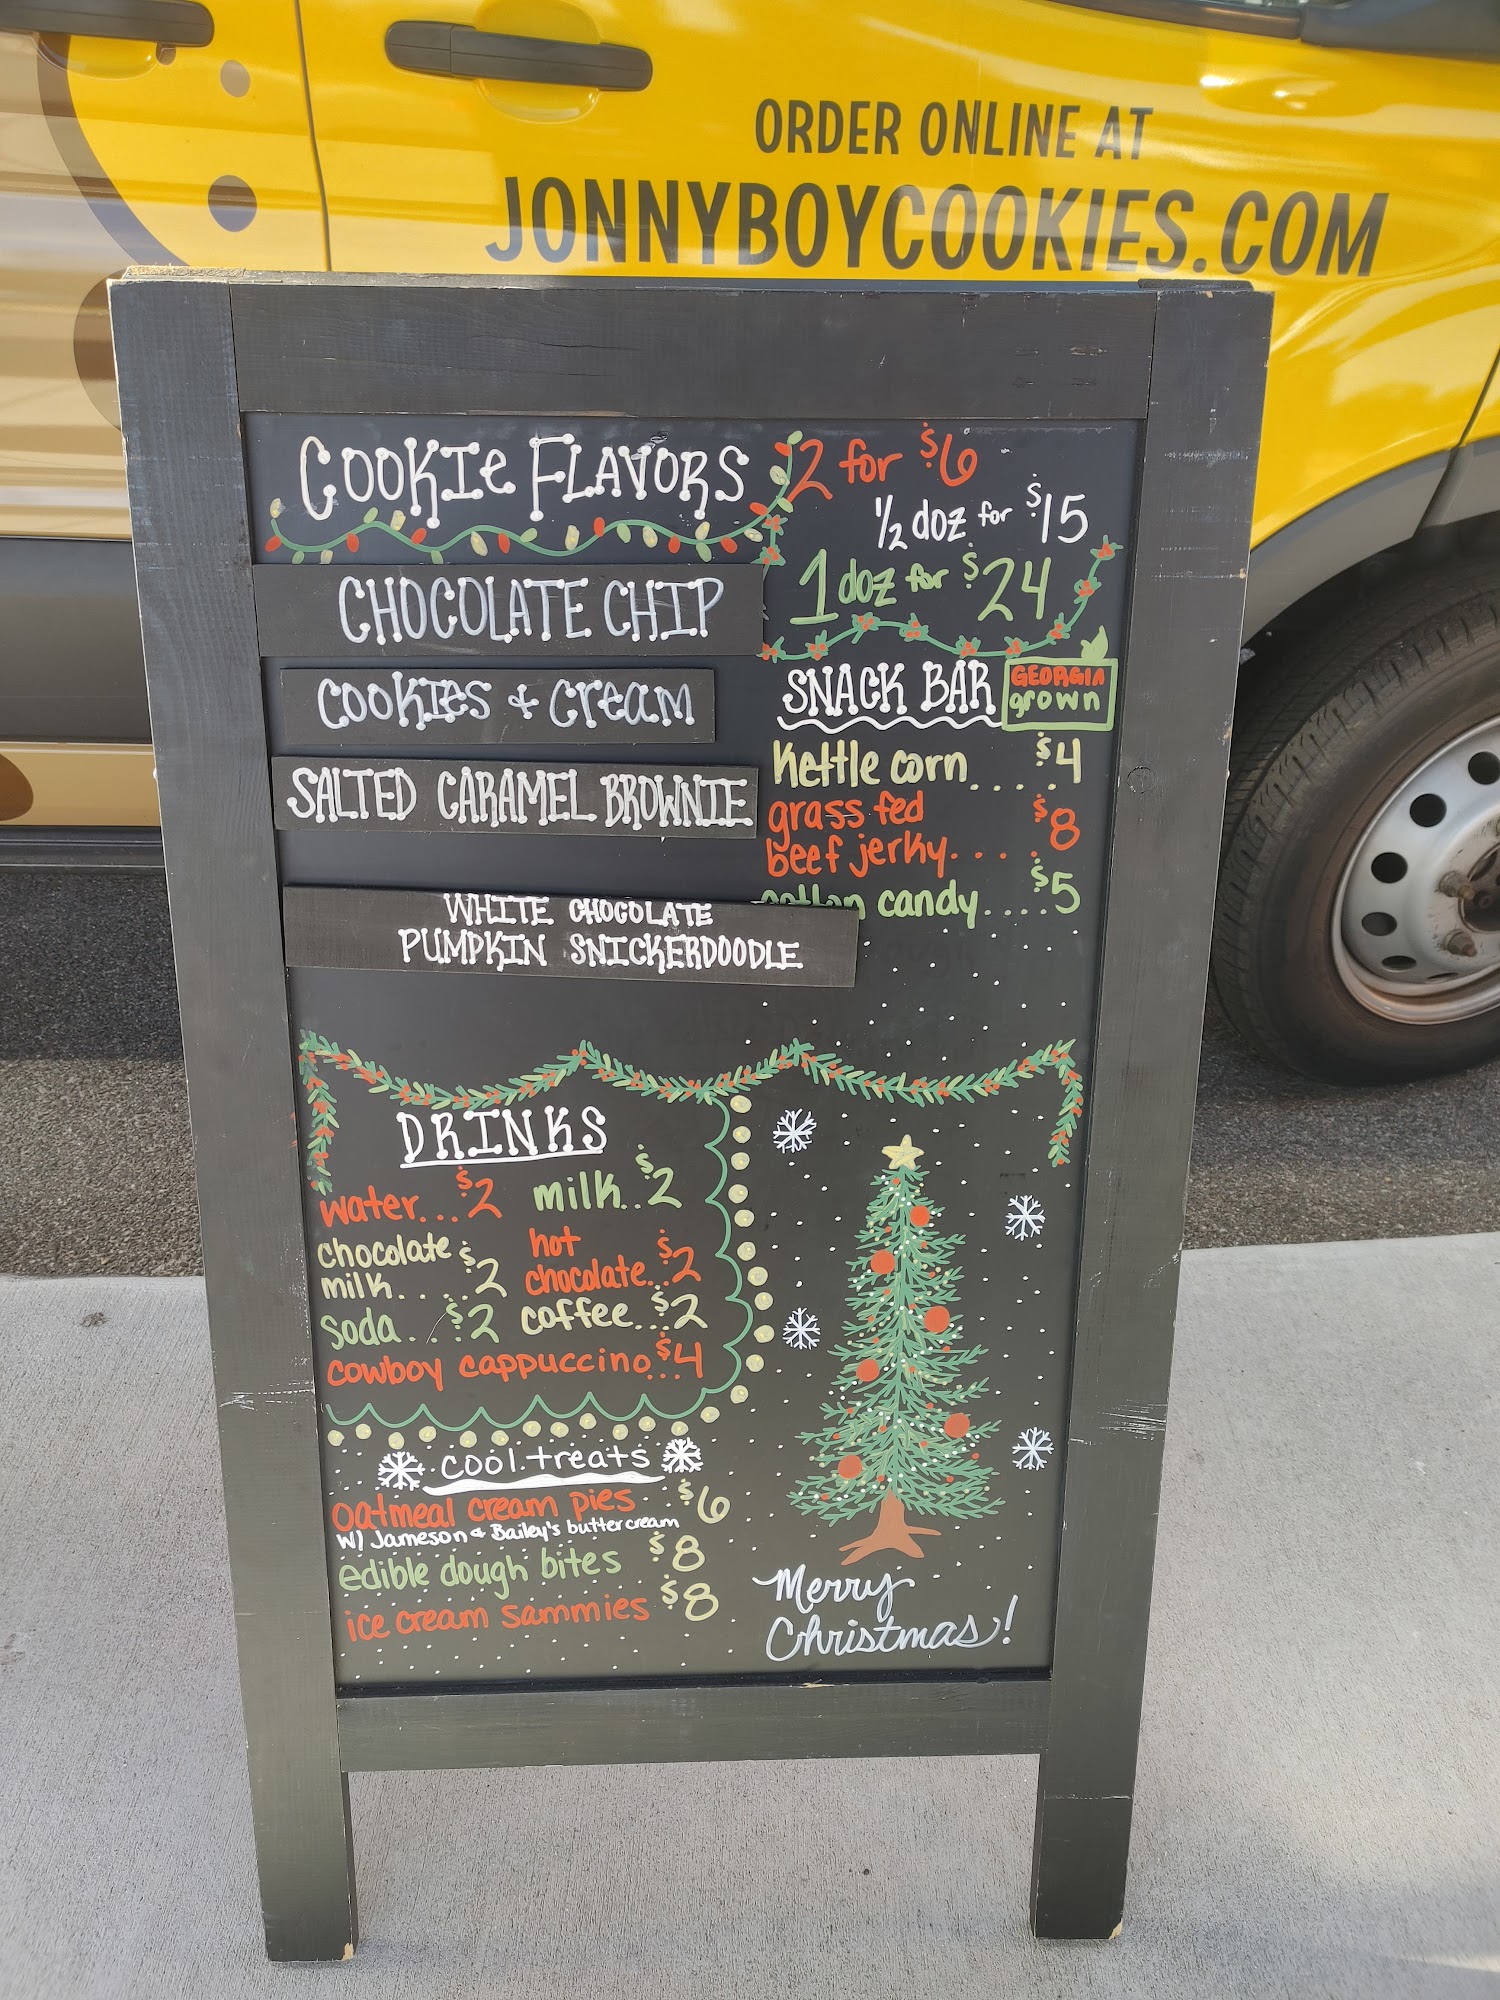 ORDER ONLINE AT
JONNYBOYCOOKIES.COM
COOKIE FLAVORS
CHOCOLATE CHIP
COOKIES & CREAM
SALTED CARAMEL BROWNIE
WHITE CHOCOLATE
PUMPKIN SNICKERDOODLE
2 for $6
1/2 doz for $15
1 doz for $24
SNACK BAR
GEORGIA
grown
kettle corn.... $4
grass fed
beef jerky.... $8
cotton candy....$5
DRINKS
water...$2
milk..$2
chocolate
milk....$2
hot
chocolate..$2
soda...$2
coffee...$2
cowboy cappuccino...$4
cool treats
oatmeal cream pies...$6
W/ Jameson & Bailey's buttercream
edible dough bites $8
ice cream sammies $8
Merry
Christmas!